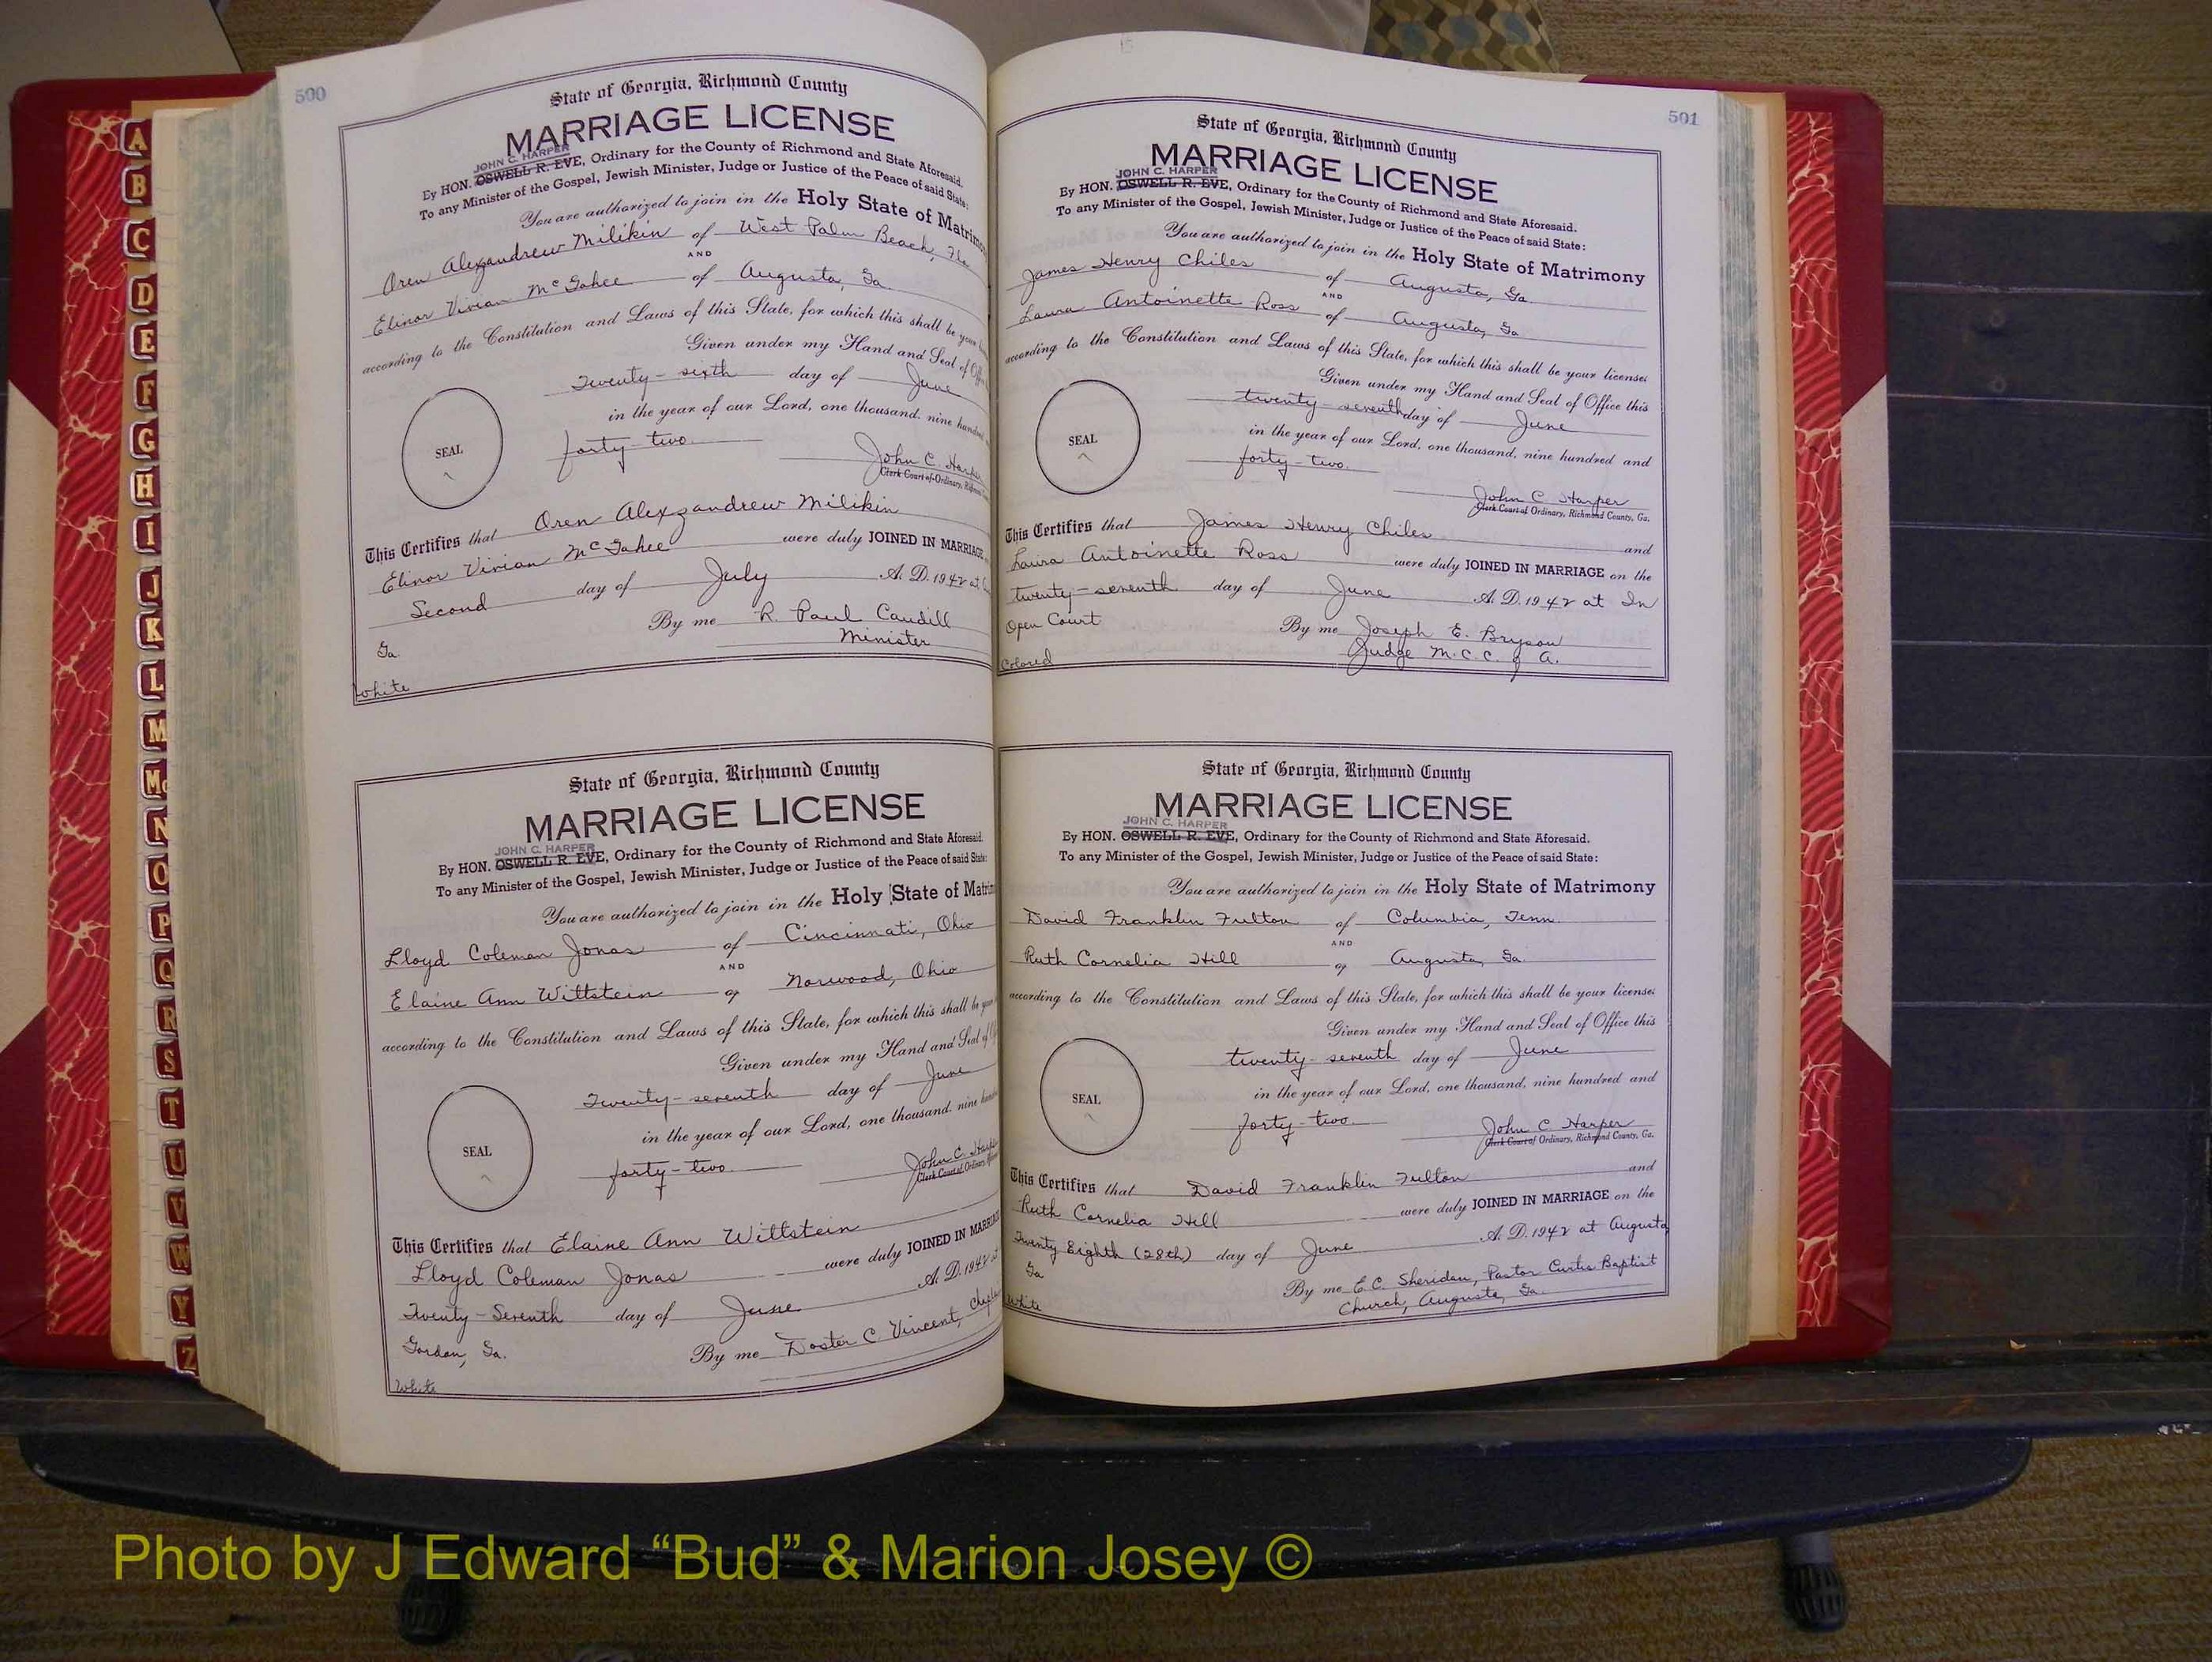 500
State of Georgia, Richmond County
MARRIAGE LICENSE
JOHN C. HARPER
By HON. OSWELL R. EVE, Ordinary for the County of Richmond and State Aforesaid.
To any Minister of the Gospel, Jewish Minister, Judge or Justice of the Peace of said State:
You are authorized to join in the Holy State of Matrimon
Oren Alexzandrew Milikin of West Palm Beach, Fla
AND
Elinor Vivian McGahee of Augusta, Ga.
according to the Constitution and Laws of this State, for which this shall be your
Given under my Hand and Seal of Off
Twenty-sixth day of June
in the year of our Lord, one thousand, nine hundred
SEAL
forty-two
John C. Harper
Clerk Court of Ordinary,
This Certifies that Oren Alexzandrew Milikin
Elinor Vivian McGahee were duly JOINED IN MARRIAGE
Second day of July A. D. 1942 at
By me R. Paul Caudill
Minister
Ga.
White
State of Georgia, Richmond County
MARRIAGE LICENSE
JOHN C. HARPER
By HON. OSWELL R. EVE, Ordinary for the County of Richmond and State Aforesaid.
To any Minister of the Gospel, Jewish Minister, Judge or Justice of the Peace of said State:
You are authorized to join in the Holy State of Matrim
Lloyd Coleman Jonas of Cincinnati, Ohio
AND
Elaine Ann Wittstein of Norwood, Ohio
according to the Constitution and Laws of this State, for which this shall be your
Given under my Hand and Seal of
Twenty-seventh day of June
in the year of our Lord, one thousand, nine hund
SEAL
forty-two.
John C. Harp
Clerk Court of Ordinary,
This Certifies that Elaine Ann Wittstein
Lloyd Coleman Jonas were duly JOINED IN MARRIAG
Twenty-Seventh day of June A. D. 1942 at
Gordon, Ga. By me Doster C. Vincent, Chapla
White
501
State of Georgia, Richmond County
MARRIAGE LICENSE
JOHN C. HARPER
By HON. OSWELL R. EVE, Ordinary for the County of Richmond and State Aforesaid.
To any Minister of the Gospel, Jewish Minister, Judge or Justice of the Peace of said State:
You are authorized to join in the Holy State of Matrimony
James Henry Chiles of Augusta, Ga.
AND
Laura Antoinette Ross of Augusta, Ga
according to the Constitution and Laws of this State, for which this shall be your license:
Given under my Hand and Seal of Office this
twenty-seventh day of June
in the year of our Lord, one thousand, nine hundred and
SEAL
forty-two.
John C Harper
Clerk Court of Ordinary, Richmond County, Ga.
This Certifies that James Henry Chiles and
Laura Antoinette Ross were duly JOINED IN MARRIAGE on the
twenty-seventh day of June A. D. 1942 at In
Open Court By me Joseph E. Bryson
Judge M.C.C. of A.
Colored
State of Georgia, Richmond County
MARRIAGE LICENSE
JOHN C. HARPER
By HON. OSWELL R. EVE, Ordinary for the County of Richmond and State Aforesaid.
To any Minister of the Gospel, Jewish Minister, Judge or Justice of the Peace of said State:
You are authorized to join in the Holy State of Matrimony
David Franklin Fulton of Columbia, Tenn.
AND
Ruth Cornelia Hill of Augusta, Ga.
according to the Constitution and Laws of this State, for which this shall be your license:
Given under my Hand and Seal of Office this
twenty-seventh day of June
in the year of our Lord, one thousand, nine hundred and
SEAL
forty-two.
John C Harper
Clerk Court of Ordinary, Richmond County, Ga.
This Certifies that David Franklin Fulton and
Ruth Cornelia Hill were duly JOINED IN MARRIAGE on the
Twenty Eighth (28th) day of June A. D. 1942 at Augusta,
Ga By me E.C. Sheridan, Pastor Curtis Baptist
Church, Augusta, Ga.
White
A
B
C
D
E
F
G
H
I
J
K
L
M
Mc
N
O
P
Q
R
S
T
U
V
W
Y
Z
Photo by J Edward “Bud” & Marion Josey ©